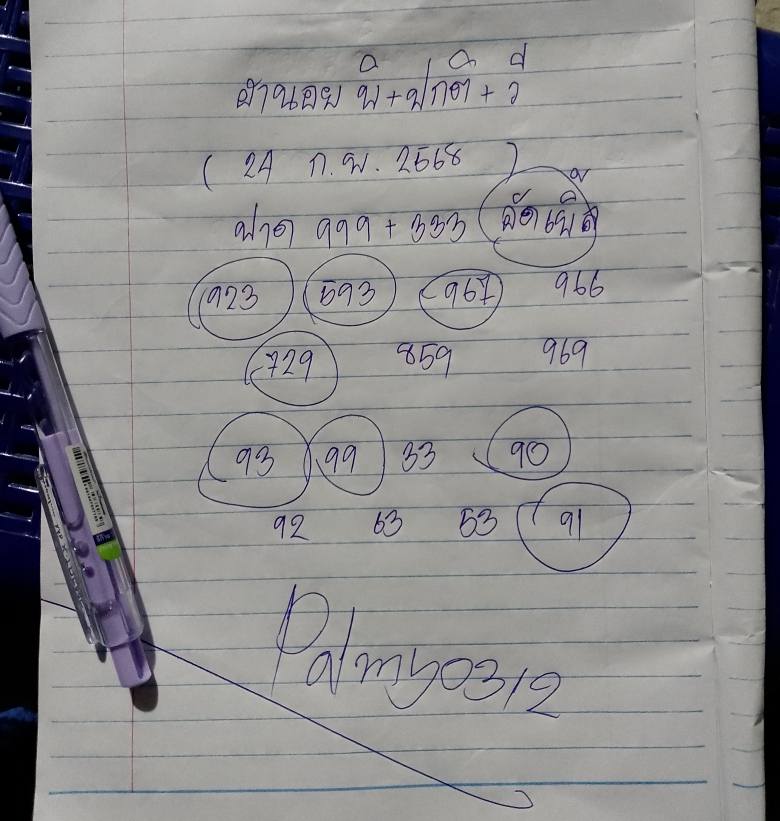 ฮานอย พิ+ปกติ+วี
( 24 ก.พ. 2568 )
ฟาด 999 + 333
923 593 967 966
729 859 969
93 99 33 90
92 63 53 91
Palmy0312